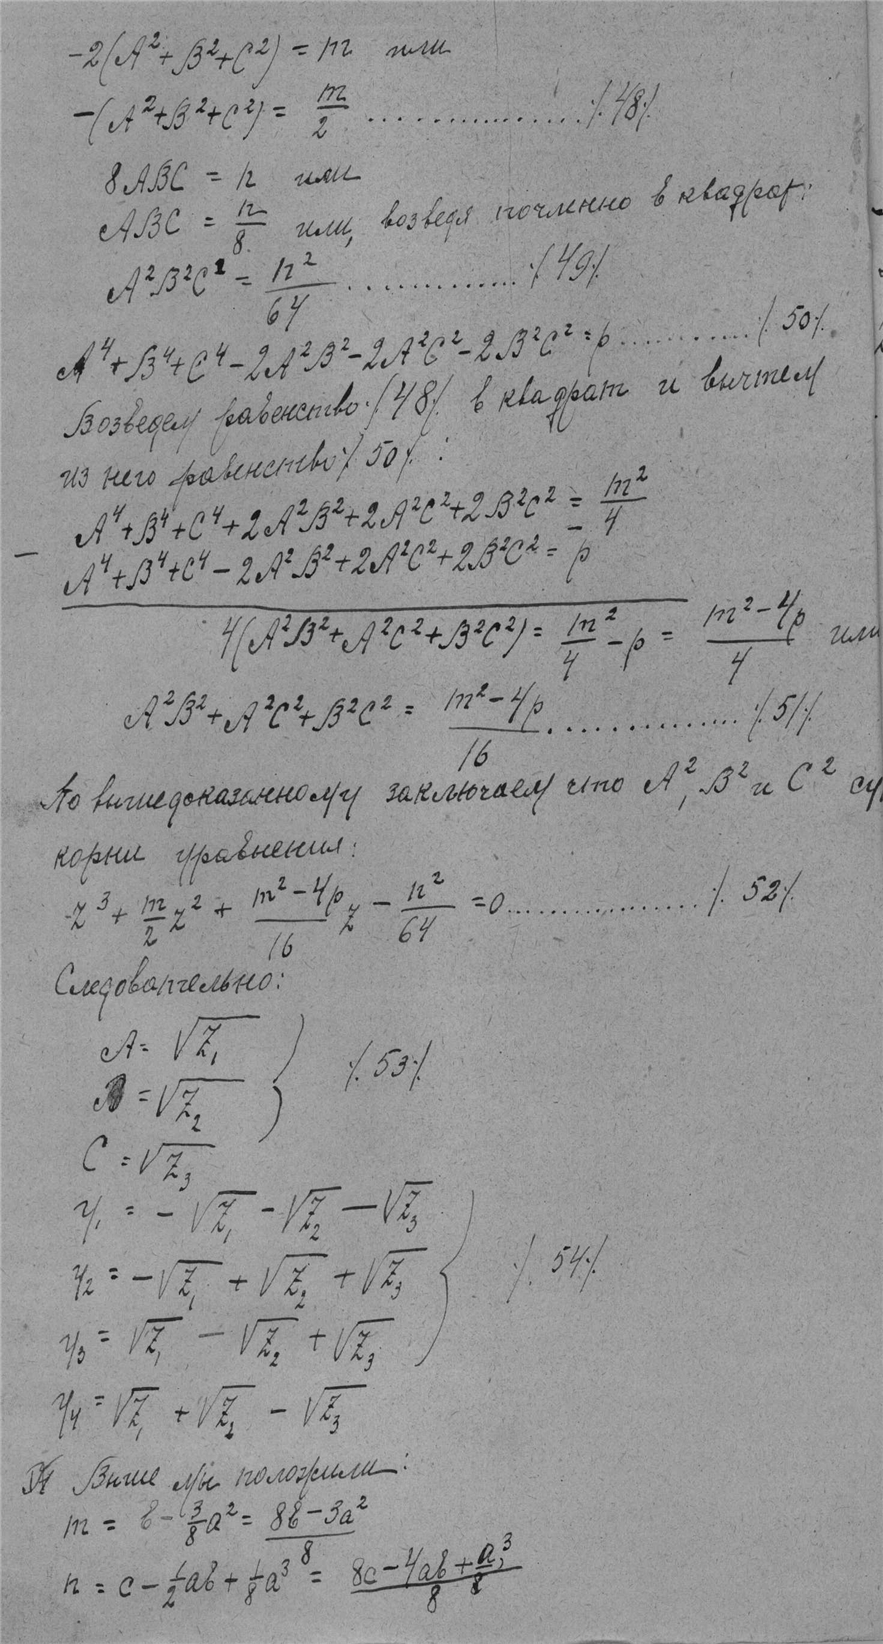 -2(A²+B²+C²) = m или
-(A²+B²+C²) = m/2 ................ ·/.48·/.
8ABC = n или
ABC = n/8 или, возведя почленно в квадрат:
A²B²C² = n²/64 ............... ·/.49·/.
A⁴+B⁴+C⁴-2A²B²-2A²C²-2B²C² = p ............ ·/.50·/.
Возведем равенство ·/.48·/. в квадрат и вычтем
из него равенство ·/.50·/. :
A⁴+B⁴+C⁴+2A²B²+2A²C²+2B²C² = m²/4
- A⁴+B⁴+C⁴-2A²B²+2A²C²+2B²C² = p
4(A²B²+A²C²+B²C²) = m²/4 - p = (m²-4p)/4 или
A²B²+A²C²+B²C² = (m²-4p)/16 ............... ·/.51·/.
По вышедоказанному заключаем что A², B² и C² су
корни уравнения:
z³ + m/2 z² + (m²-4p)/16 z - n²/64 = 0 ................. ·/.52·/.
Следовательно:
A = √z₁
B = √z₂ ·/.53·/.
C = √z₃
y₁ = -√z₁ - √z₂ - √z₃
y₂ = -√z₁ + √z₂ + √z₃ ·/.54·/.
y₃ = √z₁ - √z₂ + √z₃
y₄ = √z₁ + √z₂ - √z₃
Выше мы положили:
m = b - 3/8 a² = (8b-3a²)/8
n = c - 1/2 ab + 1/8 a³ = (8c-4ab+a³)/8